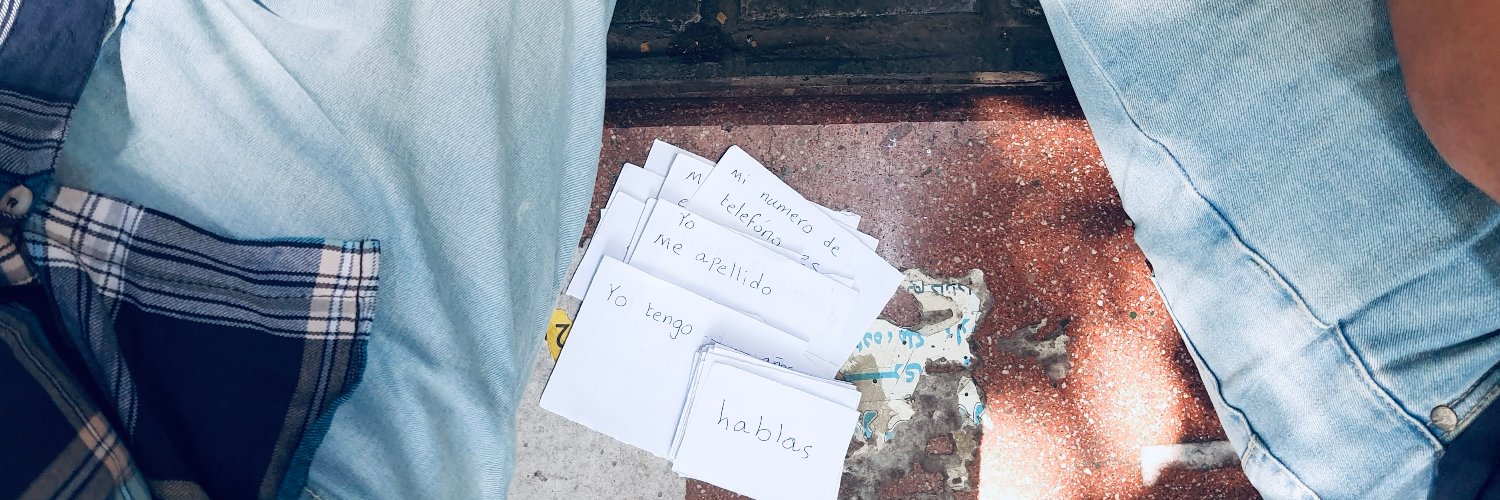 Mi numero de
telefono es
Yo
Me apellido
Yo tengo
años
hablas
2